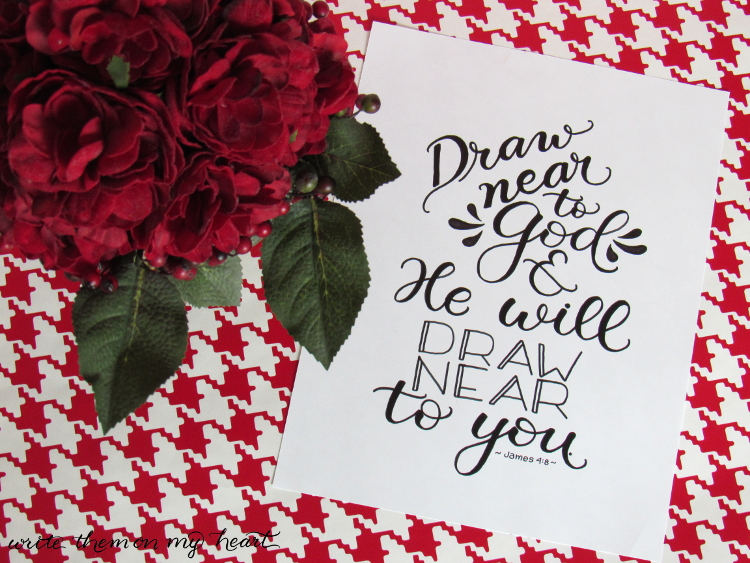 Draw
near
to
God
&
He will
DRAW
NEAR
to you.
~ James 4:8 ~
write them on my heart